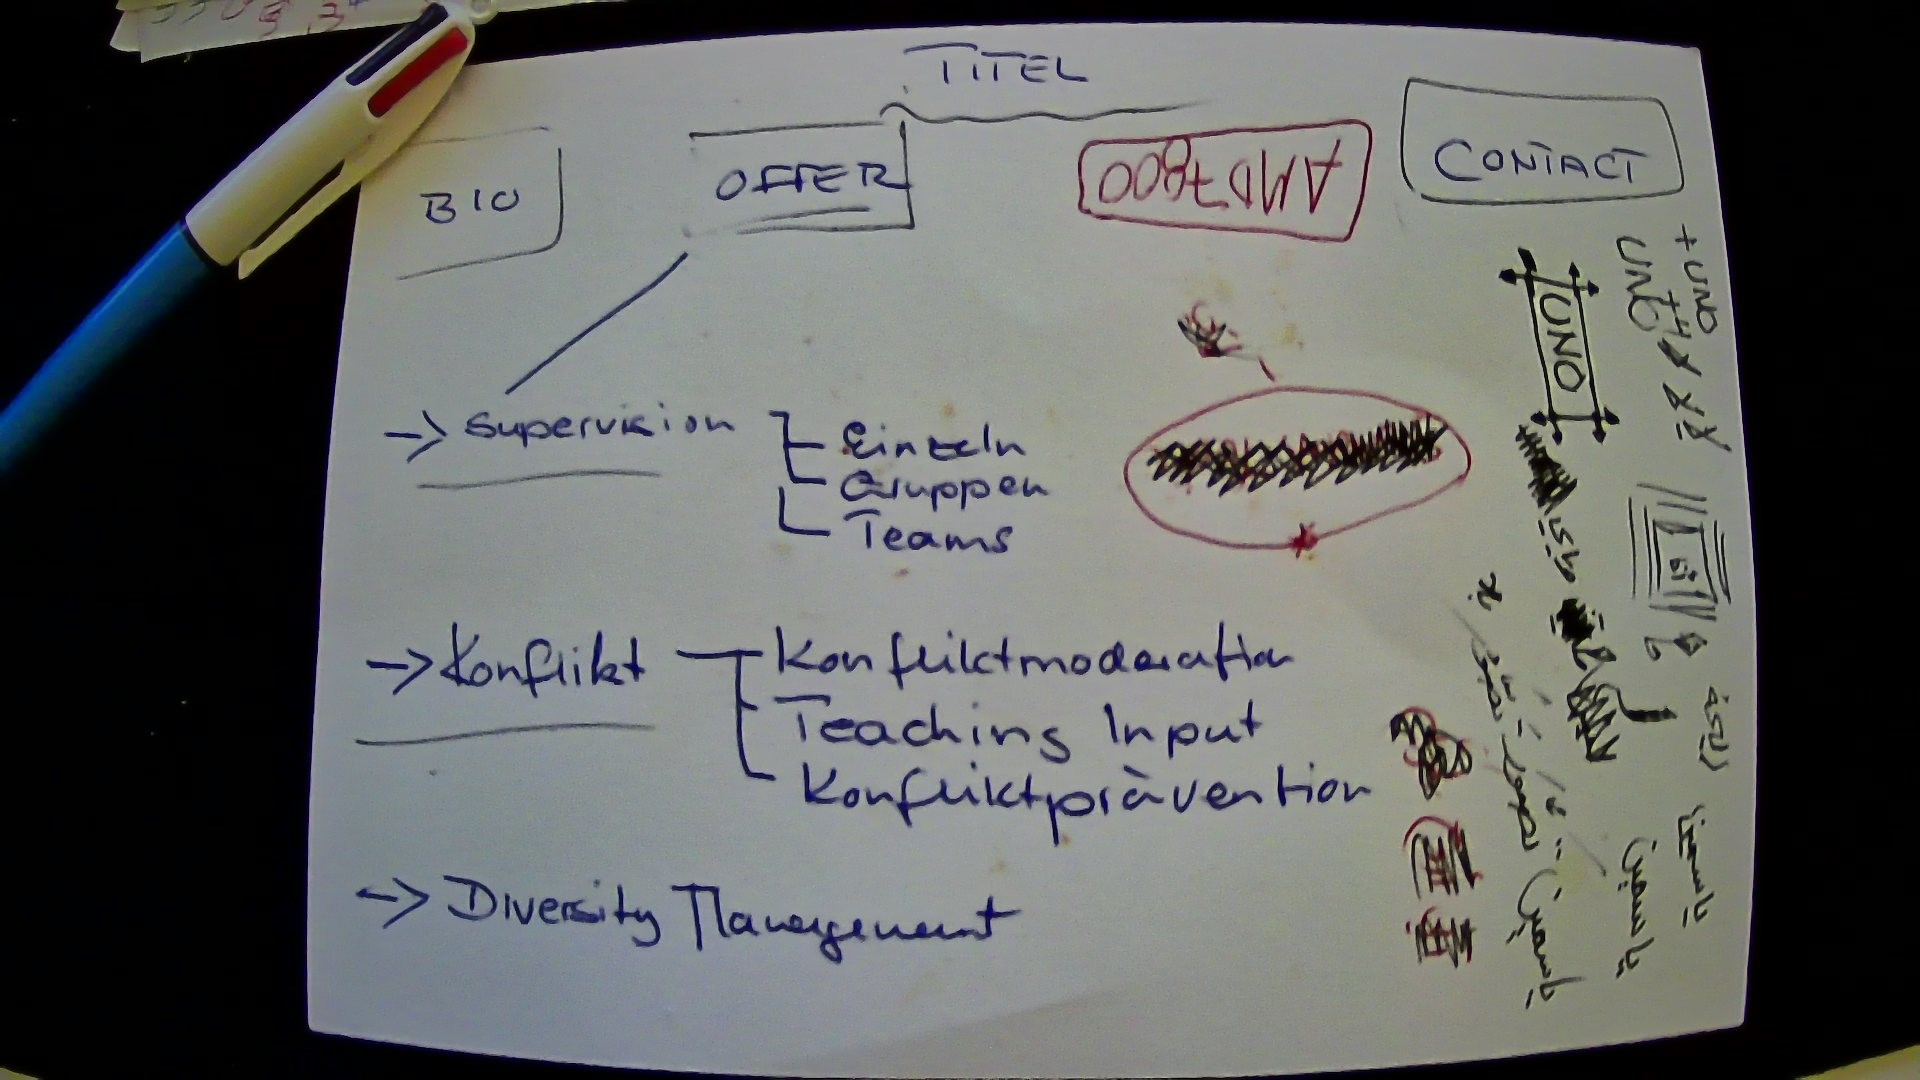 TITEL
BIO
OFFER
AMD7800
CONTACT
-> Supervision
Einzeln
Gruppen
Teams
-> Konflikt
Konfliktmoderation
Teaching Input
Konfliktprävention
-> Diversity Management
+UNO
UNO
+4
UNO
ياسمين
ياسمين
ياسمين